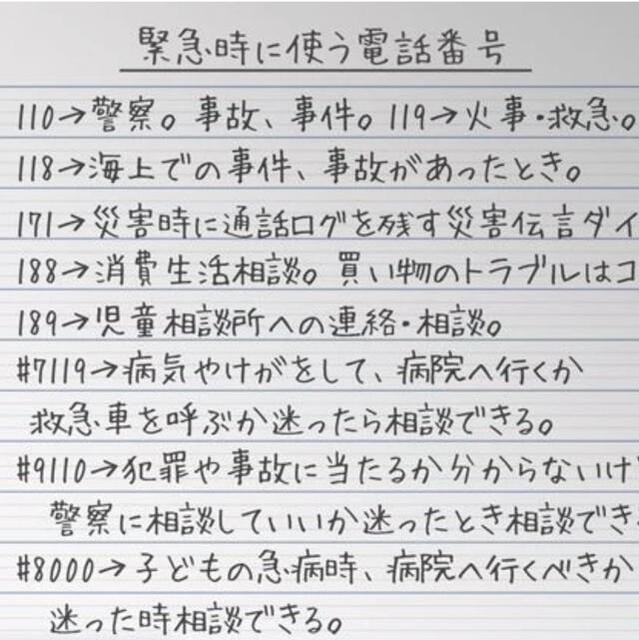 緊急時に使う電話番号
110→警察。事故、事件。119→火事・救急。
118→海上での事件、事故があったとき。
171→災害時に通話ログを残す災害伝言ダイ
188→消費生活相談。買い物のトラブルはコ
189→児童相談所への連絡・相談。
#7119→病気やけがをして、病院へ行くか
救急車を呼ぶか迷ったら相談できる。
#9110→犯罪や事故に当たるか分からないけ
警察に相談していいか迷ったとき相談でき
#8000→子どもの急病時、病院へ行くべきか
迷った時相談できる。